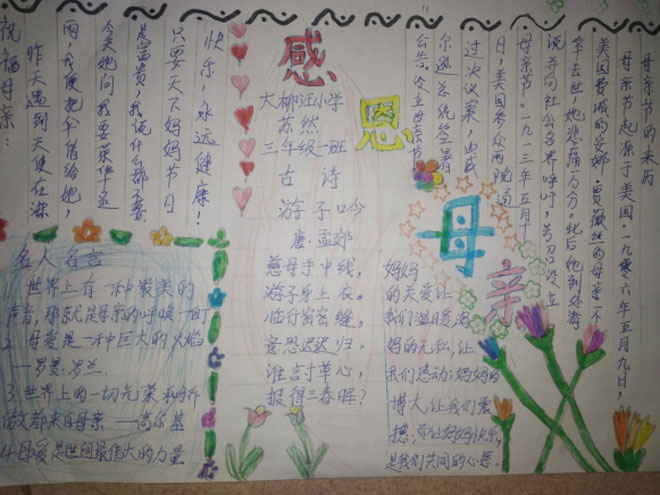 母亲节的来历
母亲节起源于美国.一九零六年五月九日,
美国费城的安娜·贾薇丝的母亲不
幸去世,她悲痛万分.此后她到处游
说并向社会各界呼吁,
母亲节.一九一三年五月十
日,美国参众两院通
过决议案,由威
尔逊总统签署
公告,设立母亲节
感
恩
母
亲
大柳汪小学
苏然
三年级一班
古诗
游子吟
唐·孟郊
慈母手中线,
游子身上衣。
临行密密缝,
意恐迟迟归。
谁言寸草心,
报得三春晖?
祝福母亲:
昨天遇到天使在淋
雨,我便把伞借给她,
今天她问我要荣华还
是富贵,我说什么都不要
只要天下妈妈节日
快乐,永远健康!
名人名言
1.世界上有一种最美的
声音,那就是母亲的呼唤
2.母爱是一种巨大的火焰
—罗曼·罗兰
3.世界上的一切光荣和骄
傲都来自母亲 —高尔基
4.母爱是世间最伟大的力量
妈妈
的关爱让
我们温暖,妈
妈的无私,让
我们感动;妈妈的
博大,让我们
想;而让妈妈快乐,
是我们共同的心愿。